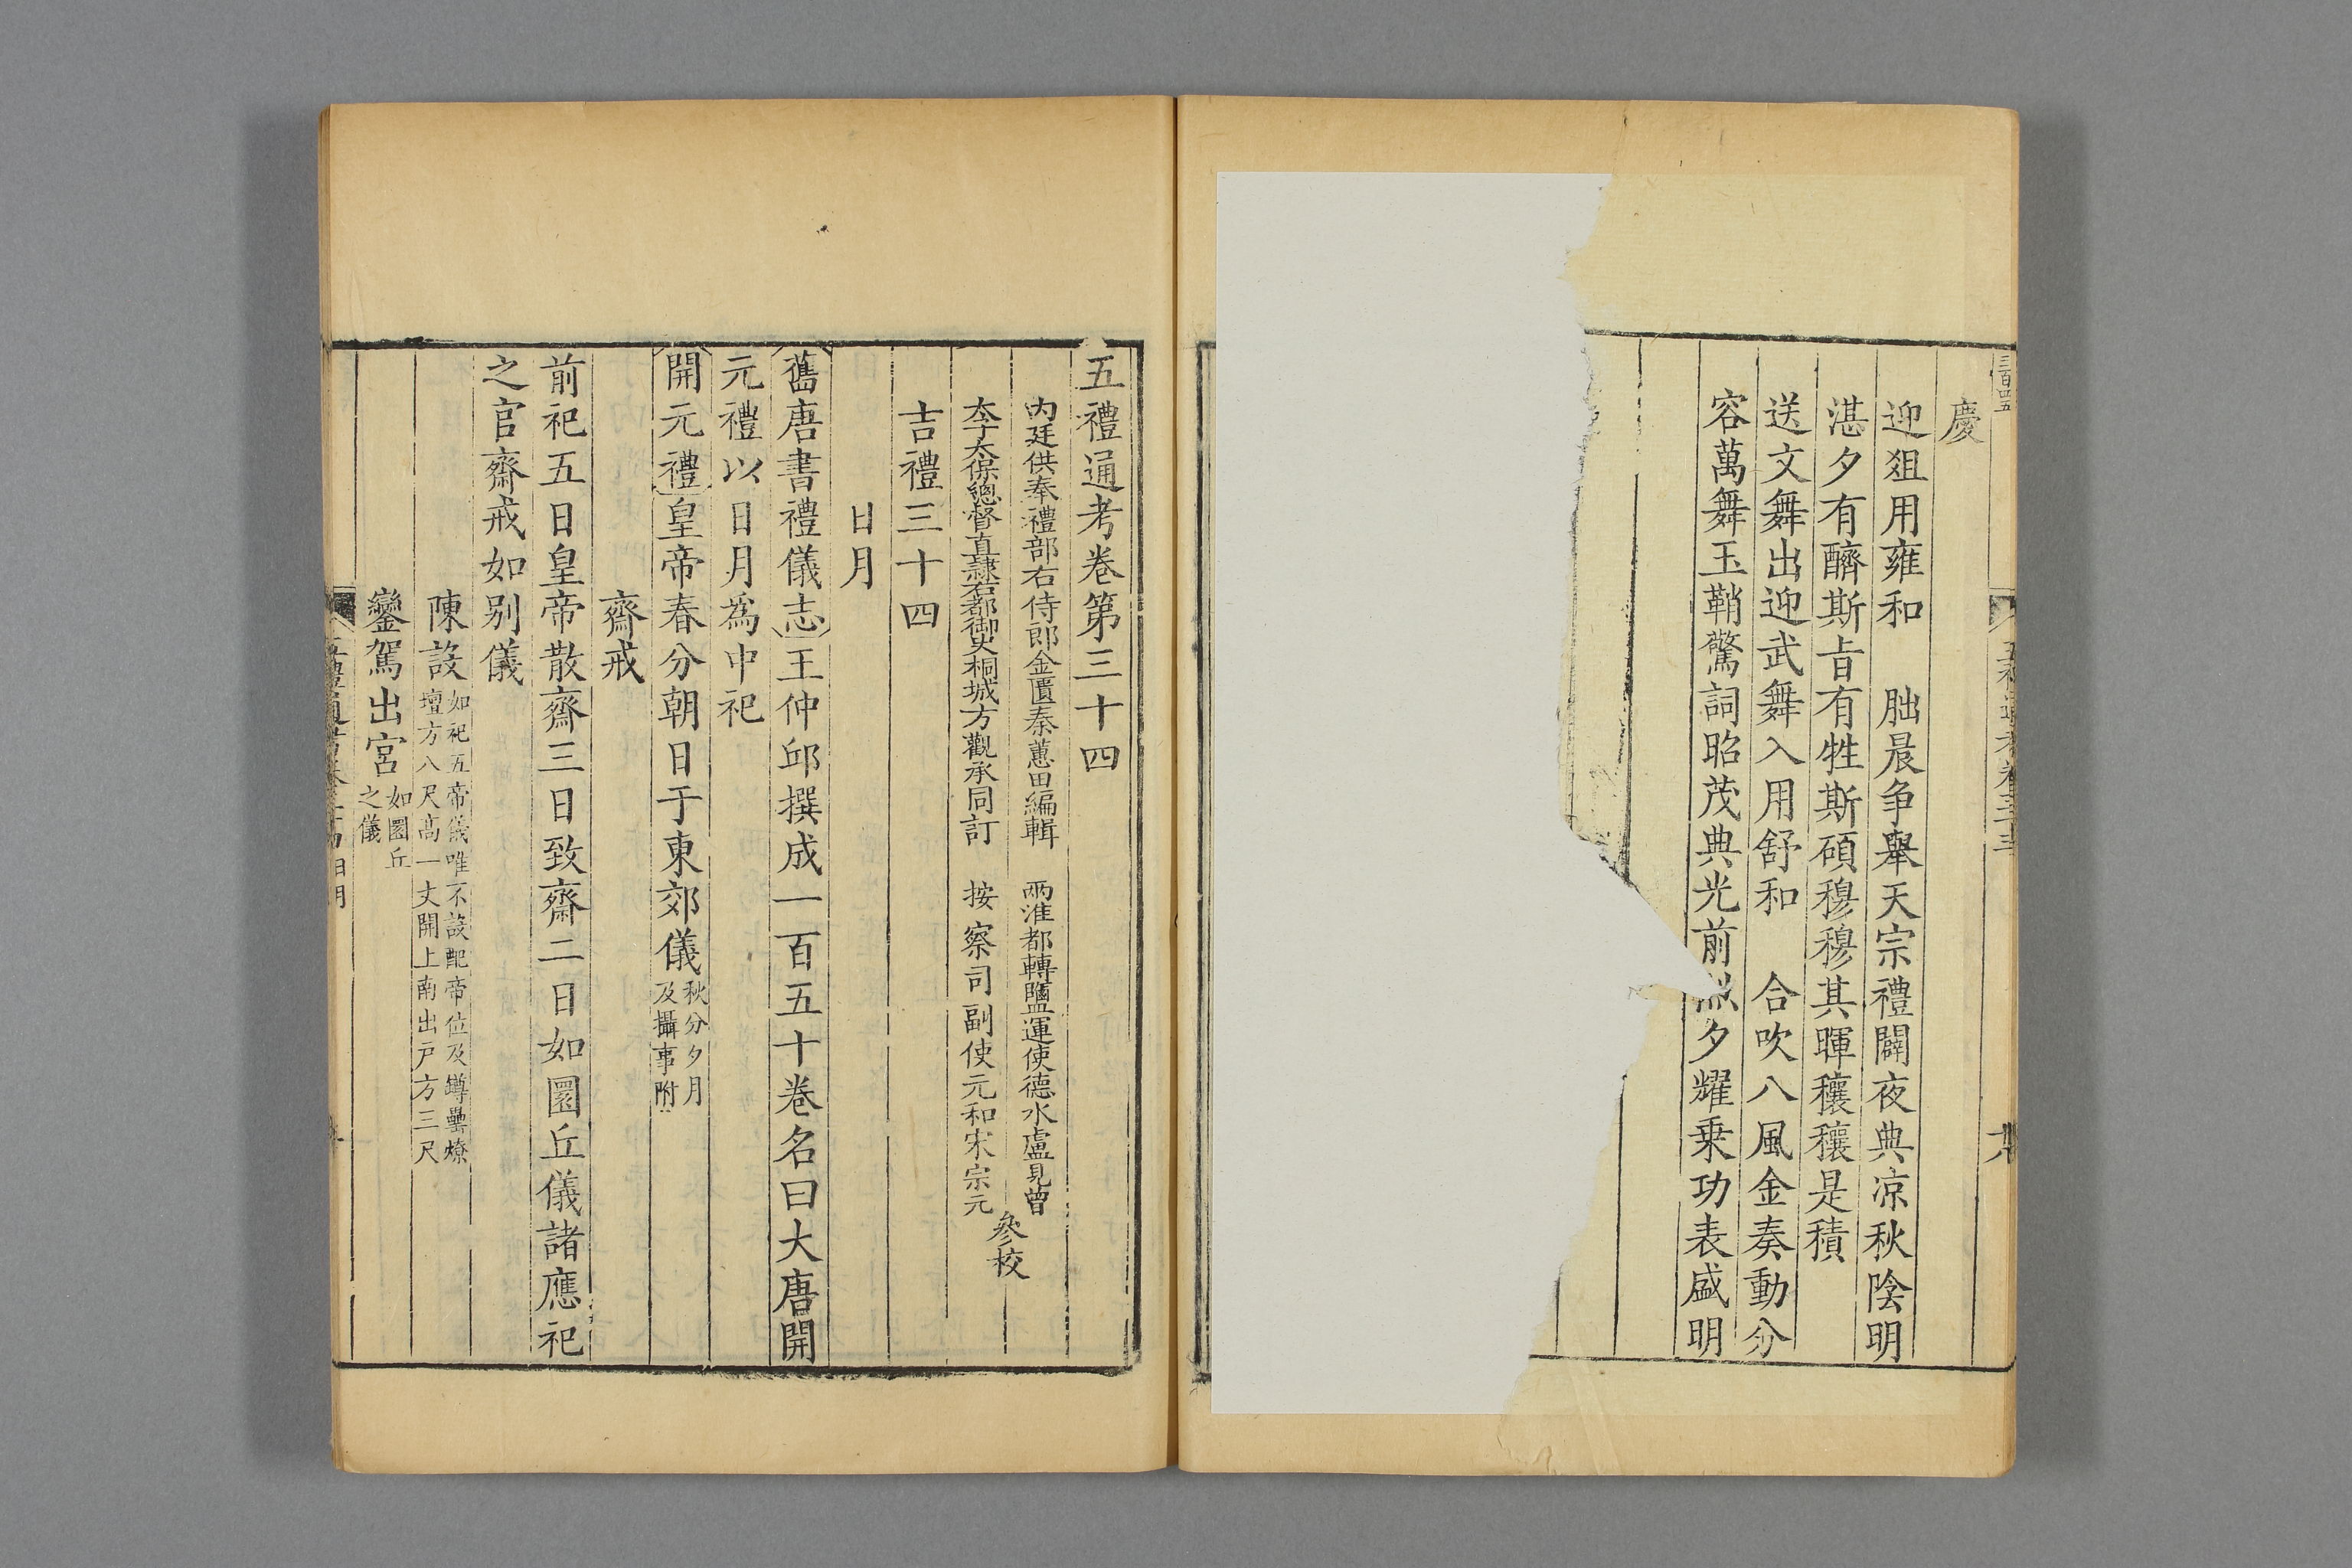 慶
迎俎用雍和　朏晨争舉天宗禮闢夜典凉秋陰明
湛夕有醑斯旨有牲斯碩穆穆其暉穰穰是積
送文舞出迎武舞入用舒和　合吹八風金奏動分
容萬舞玉鞘驚詞昭茂典光前烈夕耀乗功表盛明
五禮通考卷第三十四
内廷供奉禮部右侍郎金匱秦蕙田編輯　兩淮都轉鹽運使德水盧見曾
太子太保總督直隷右都御史桐城方觀承同訂　按察司副使元和宋宗元
參校
吉禮三十四
日月
舊唐書禮儀志王仲邱撰成一百五十卷名曰大唐開
元禮以日月爲中祀
開元禮皇帝春分朝日于東郊儀秋分夕月及攝事附
齋戒
前祀五日皇帝散齋三日致齋二日如圜丘儀諸應祀
之官齋戒如别儀
陳設如祀五帝儀唯不設配帝位及罇罍燎壇方八尺高一丈開上南出戸方三尺
鑾駕出宮如圜丘之儀